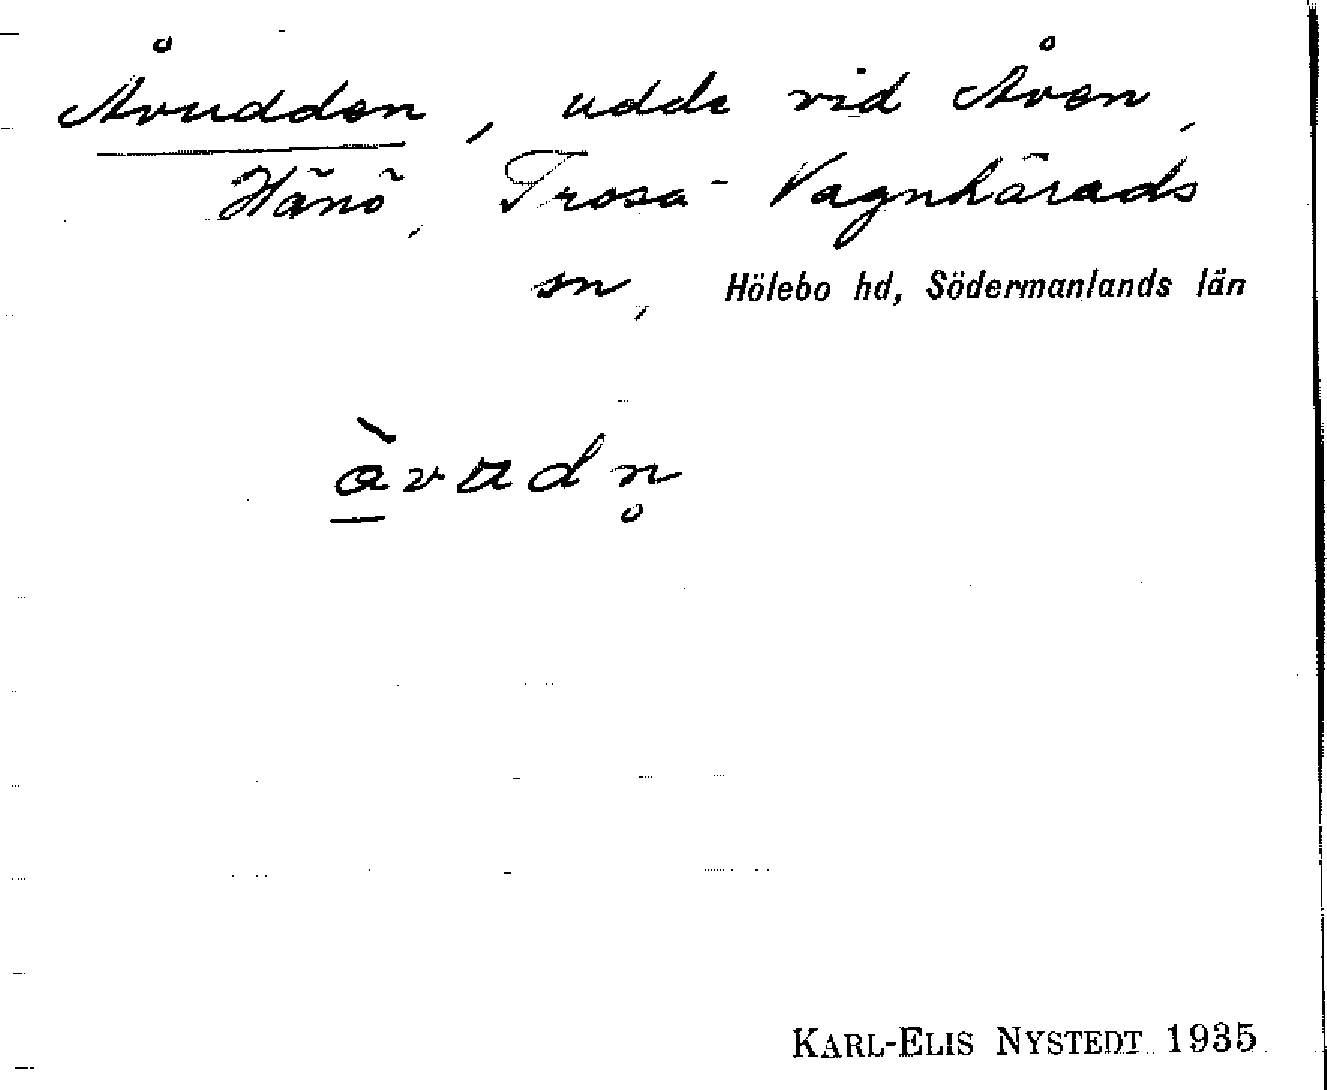 Åvudden, udde vid Åven,
Hänö, Trosa-Vagnhärads
sn, Hölebo hd, Södermanlands län
à̱vudn̥
KARL-ELIS NYSTEDT 1935